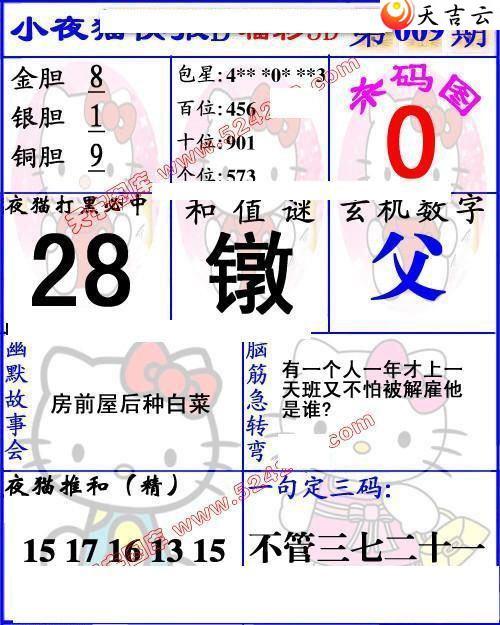 天吉云
小夜猫快报D 福彩3D 第009期
金胆 8
银胆 1
铜胆 9
包星:4** *0* **3
百位:456
十位:901
个位:573
杀码图
0
夜猫打黑必中
28
和值谜
镦
玄机数字
父
幽默故事会
房前屋后种白菜
脑筋急转弯
有一个人一年才上一
天班又不怕被解雇他
是谁?
夜猫推和(精)
15 17 16 13 15
一句定三码:
不管三七二十一